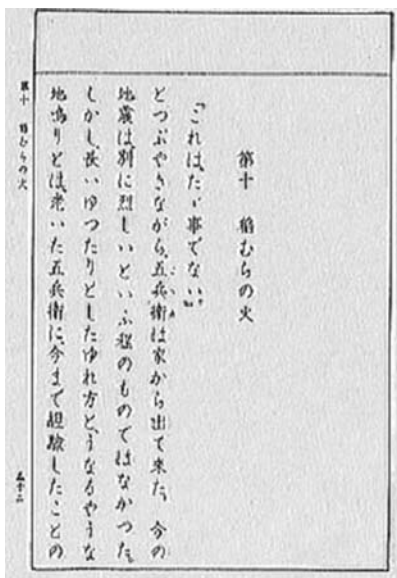 第十　稻むらの火
「これは、たゞ事でない。」
とつぶやきながら、五兵衛は家から出て來た。今の
地震は、別に烈しいといふ程のものではなかつた。
しかし、長いゆつたりとしたゆれ方と、うなるやうな
地鳴りとは、老いた五兵衛に、今まで經驗したことの
第十　稻むらの火　五十二